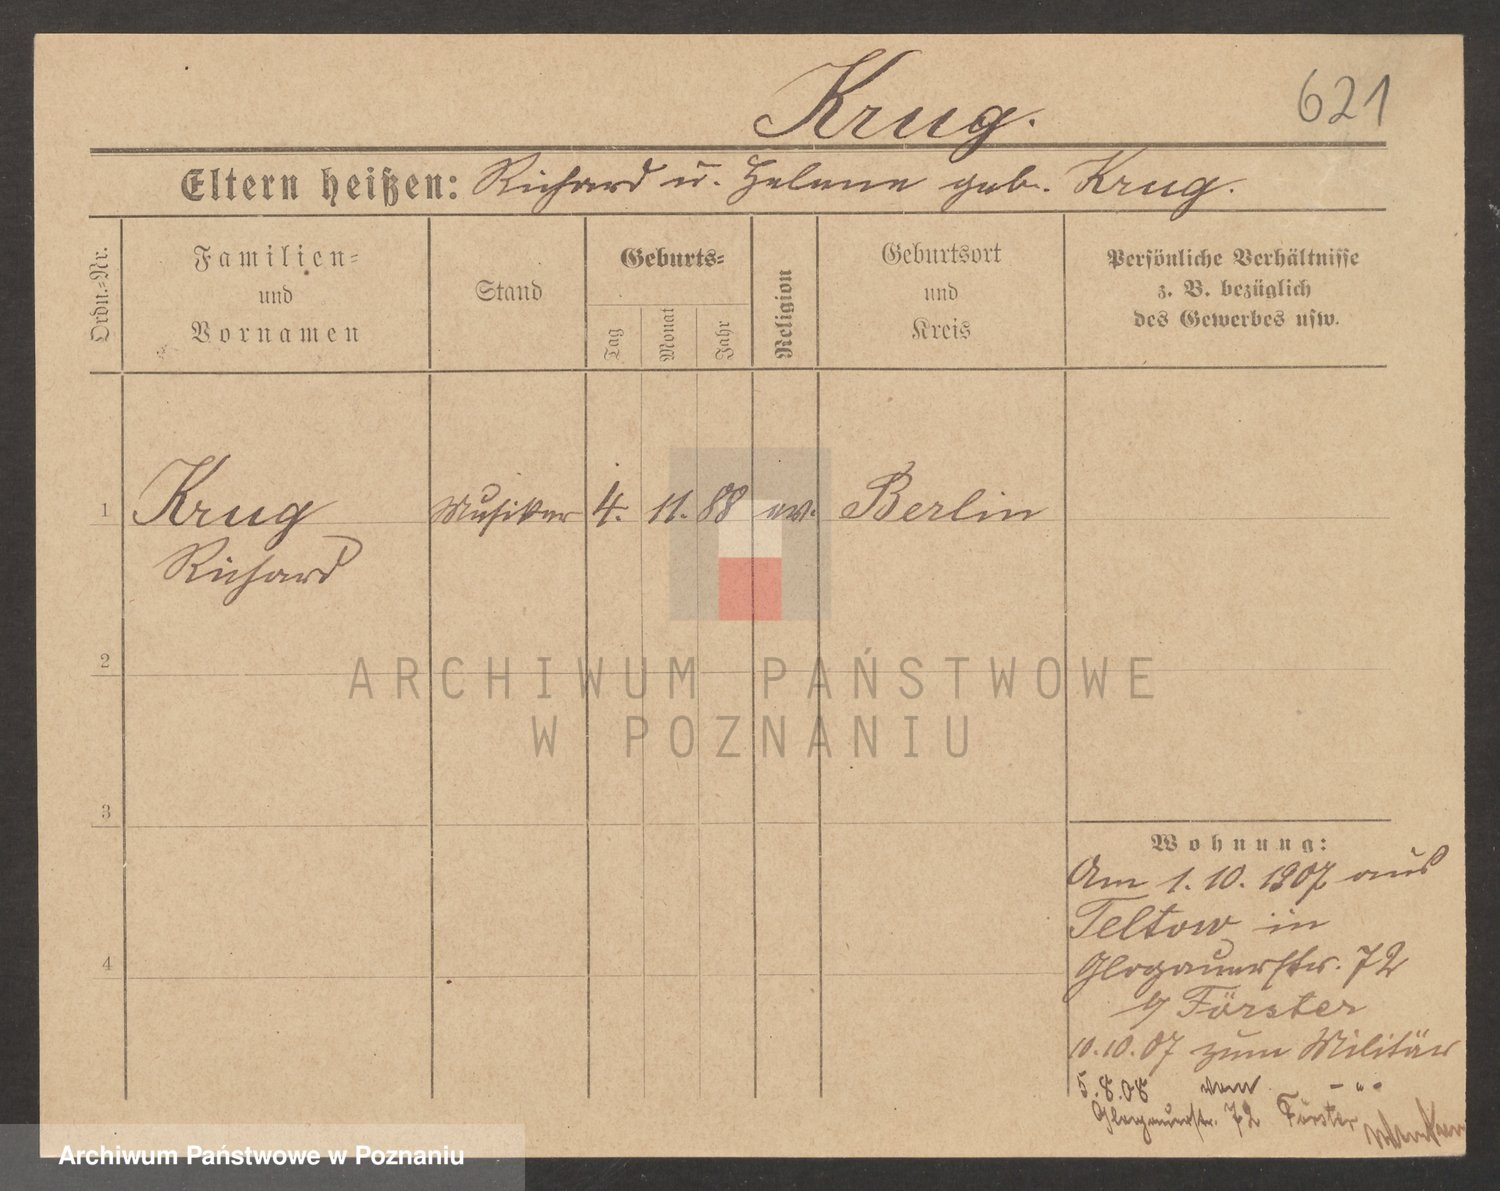 Krug.
621
Eltern heißen: Richard u. Helene geb. Krug.
Ordn.-Nr.
Familien-
und
Vornamen
Stand
Geburts-
Tag
Monat
Jahr
Religion
Geburtsort
und
Kreis
Persönliche Verhältnisse
z. B. bezüglich
des Gewerbes usw.
1 Krug Musiker 4. 11. 88 ev. Berlin
Richard
2
3
4
ARCHIWUM PAŃSTWOWE
W POZNANIU
Wohnung:
Am 1. 10. 1907 aus
Teltow in
Glogauerstr. 72
b/ Förster
10.10.07 zum Militär
5.8.08 vom - " -
Glogauerstr. 72 Förster
Archiwum Państwowe w Poznaniu